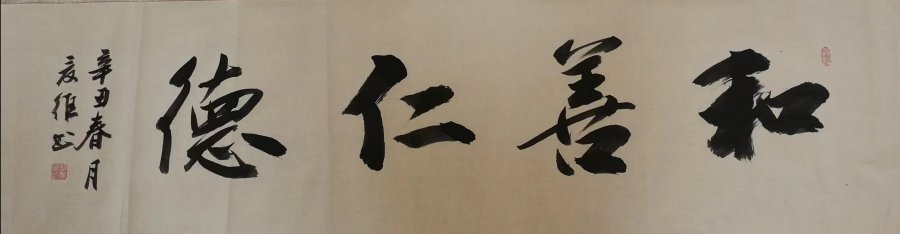 和善仁德
辛丑春月
维书